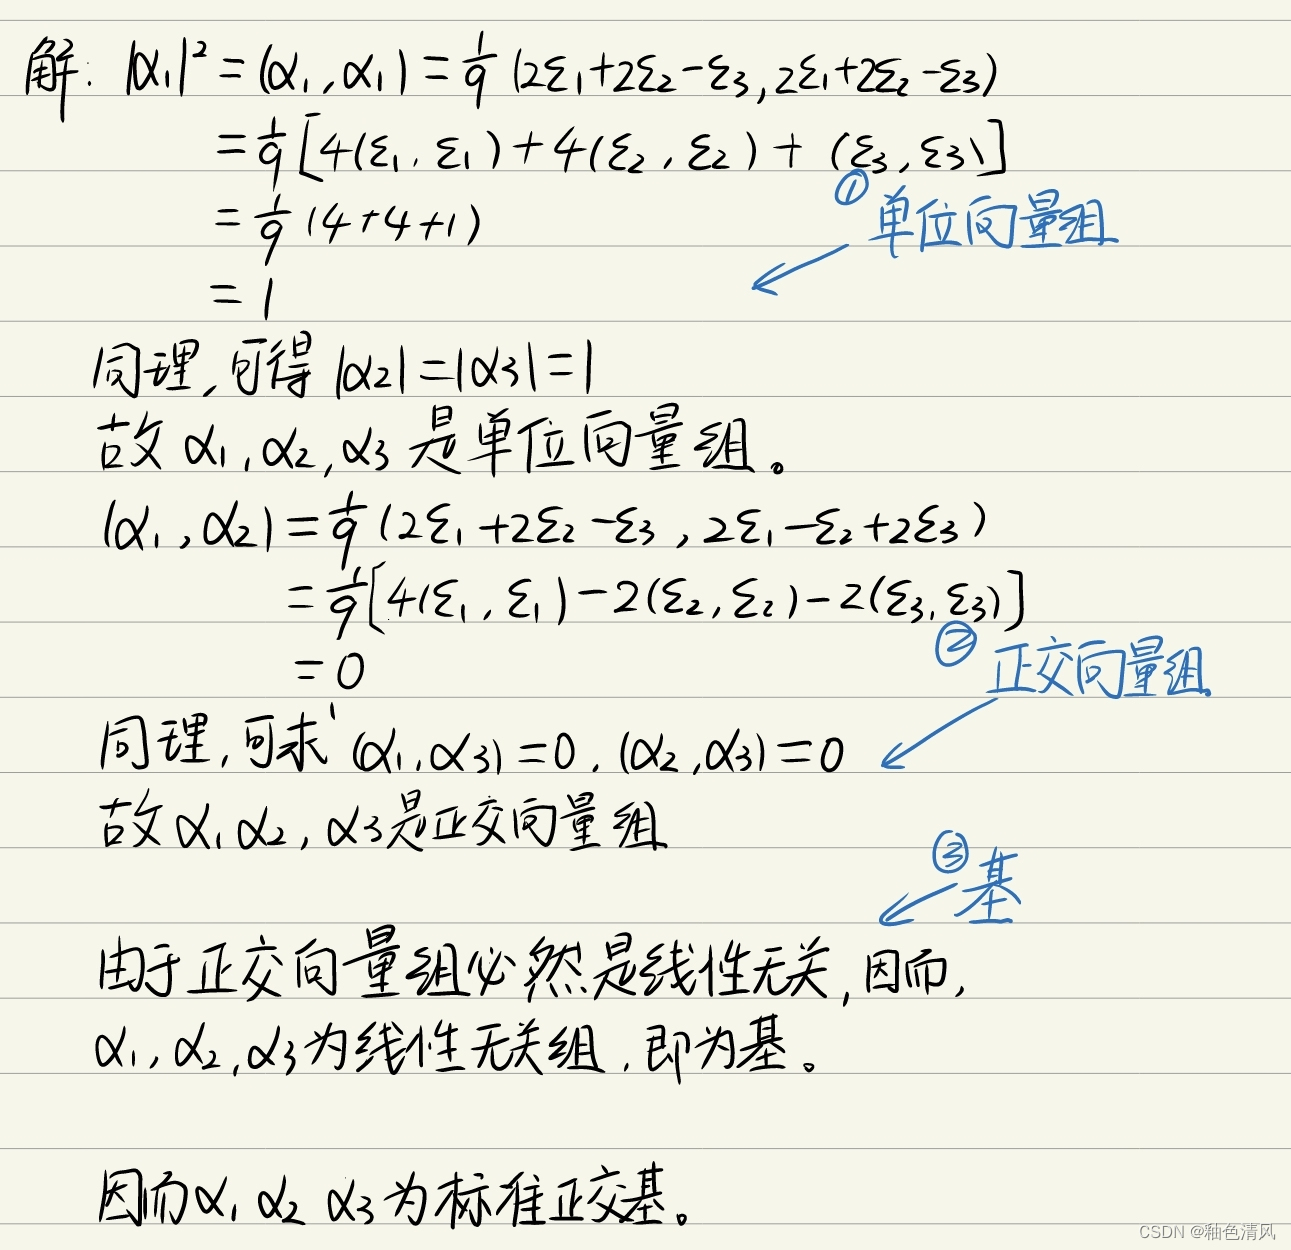 解: |α₁|² = (α₁, α₁) = 1/9 (2ε₁+2ε₂-ε₃, 2ε₁+2ε₂-ε₃)
= 1/9 [4(ε₁, ε₁) + 4(ε₂, ε₂) + (ε₃, ε₃)]
= 1/9 (4+4+1)
① 单位向量组
= 1
同理, 可得 |α₂| = |α₃| = 1
故 α₁, α₂, α₃ 是单位向量组。
(α₁, α₂) = 1/9 (2ε₁+2ε₂-ε₃, 2ε₁-ε₂+2ε₃)
= 1/9 [4(ε₁, ε₁) - 2(ε₂, ε₂) - 2(ε₃, ε₃)]
= 0
② 正交向量组
同理, 可求 (α₁, α₃) = 0, (α₂, α₃) = 0
故 α₁ α₂, α₃ 是正交向量组
③ 基
由于正交向量组必然是线性无关, 因而,
α₁, α₂, α₃ 为线性无关组, 即为基。
因而 α₁ α₂ α₃ 为标准正交基。
CSDN @釉色清风